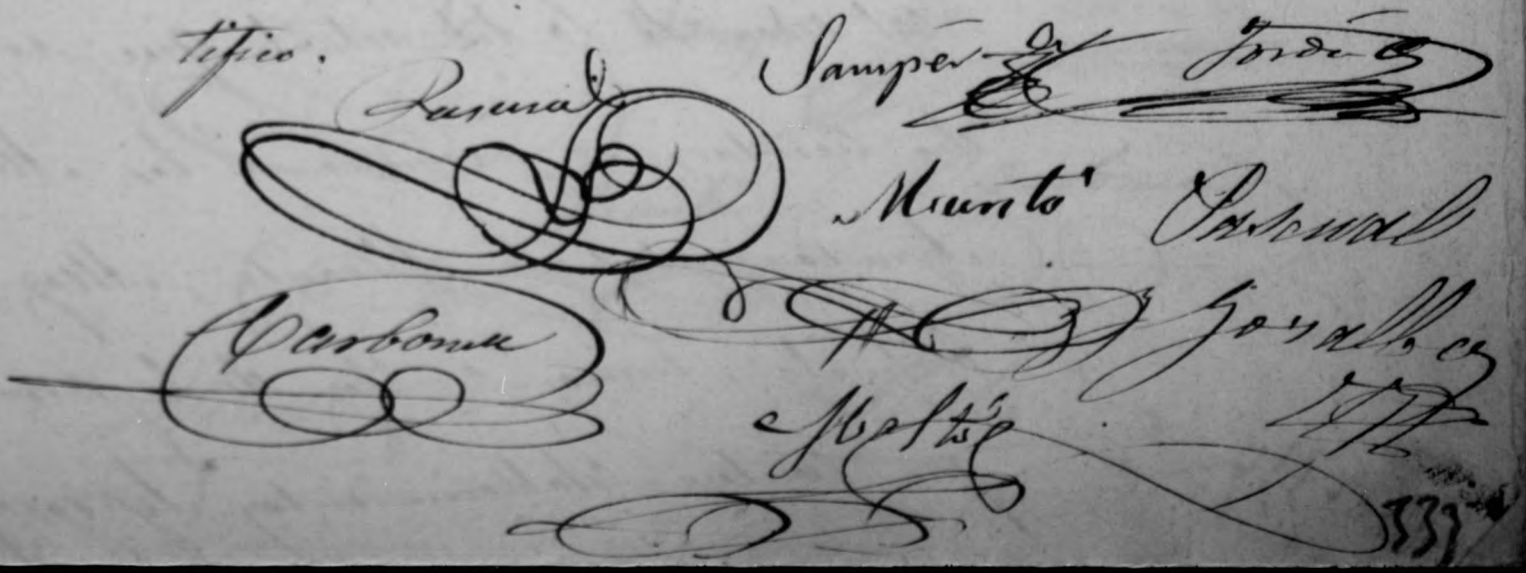 tifico.
Pascual Samper Jordá
Muntó Pascual
Carbonell Gosalbez
Moltó
339